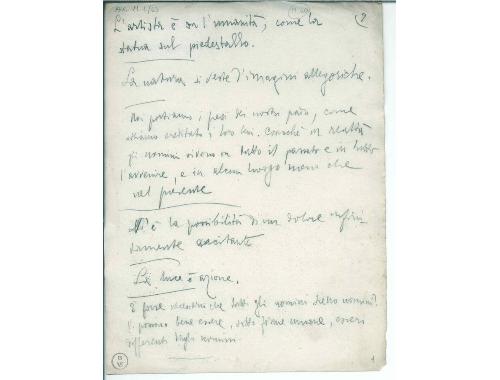 L'artista è su l'umanità, come la
statua sul piedestallo.
La natura si veste d'imagini allegoriche.
Noi portiamo i pesi dei nostri padri, come
abbiamo ereditato i loro beni. Cosicché in realtà
gli uomini vivono in tutto il passato e in tutto
l'avvenire, e in alcun luogo meno che
nel presente
V'è la possibilità di un dolore infini-
tamente eccitante
La luce è azione.
È forse necessario che tutti gli uomini siano uomini?
Vi possono bene essere, sotto forme umane, esseri
differenti dagli uomini